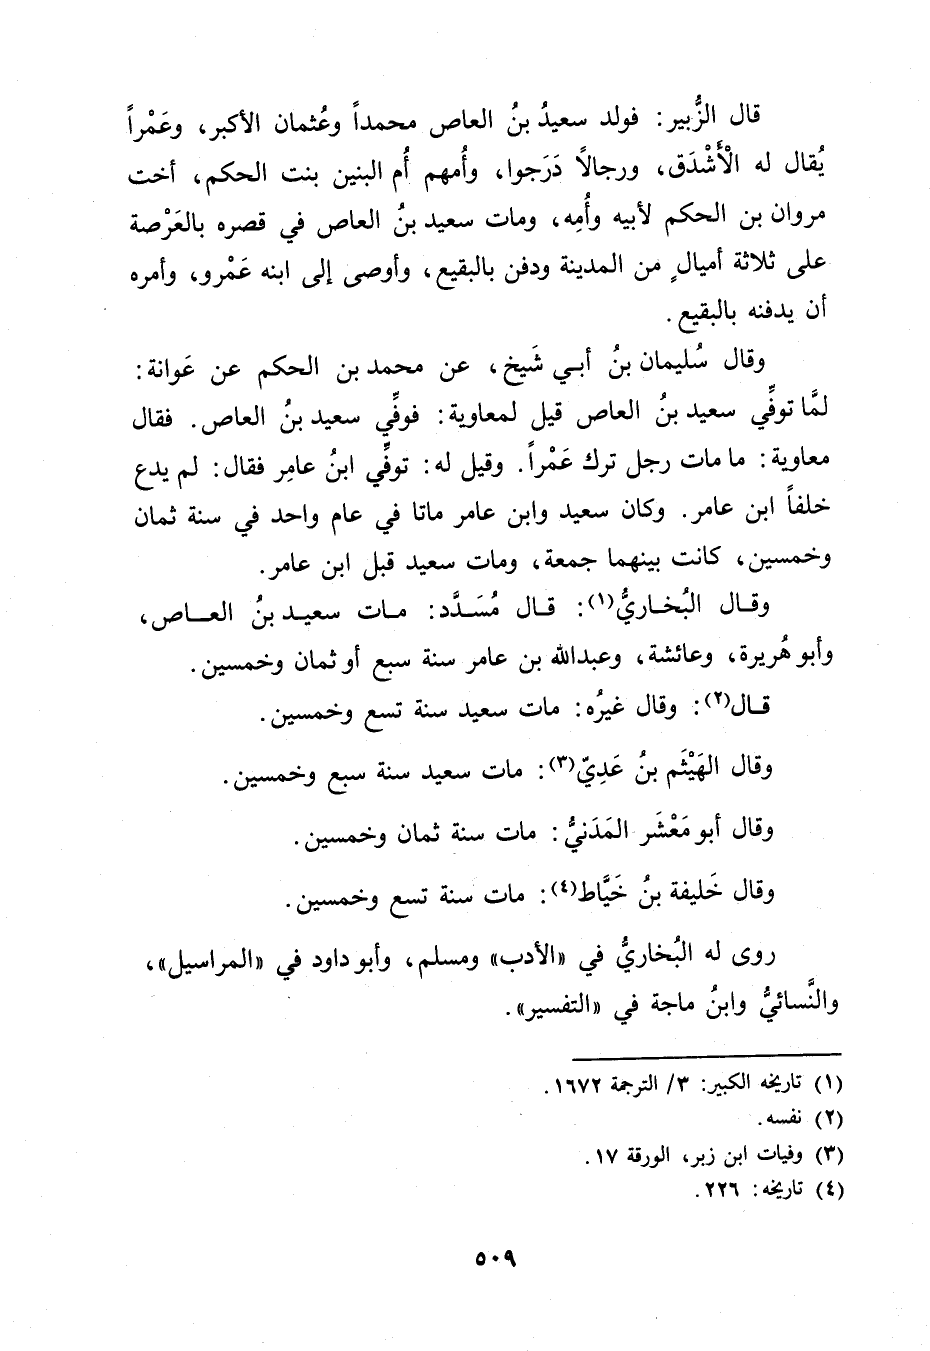 قال الزُّبير: فولد سعيدُ بنُ العاص محمداً وعُثمان الأكبر، وعَمْراً
يُقال له الْأَشْدَق، ورجالاً دَرَجوا، وأُمهم أُم البنين بنت الحكم، أخت
مروان بن الحكم لأبيه وأُمِه، ومات سعيد بنُ العاص في قصره بالعَرْصة
على ثلاثة أميالٍ من المدينة ودفن بالبقيع، وأوصى إلى ابنه عَمْرو، وأمره
أن يدفنه بالبقيع.
وقال سُليمان بنُ أبي شَيخ، عن محمد بن الحكم عن عَوانة:
لمَّا توفِّي سعيد بنُ العاص قيل لمعاوية: فوفِّي سعيد بنُ العاص. فقال
معاوية: ما مات رجل ترك عَمْراً. وقيل له: توفِّي ابنُ عامِر فقال: لم يدع
خلفاً ابن عامر. وكان سعيد وابن عامر ماتا في عام واحد في سنة ثمان
وخمسين، كانت بينهما جمعة، ومات سعيد قبل ابن عامر.
وقال البُخاريُّ(١): قال مُسَدَّد: مات سعيد بنُ العاص،
وأبو هُريرة، وعائشة، وعبدالله بن عامر سنة سبع أو ثمان وخمسين.
قال(٢): وقال غيرُه: مات سعيد سنة تسع وخمسين.
وقال الهَيْثَم بنُ عَدِيّ(٣): مات سعيد سنة سبع وخمسين.
وقال أبو مَعْشَر المَدَنيُّ: مات سنة ثمان وخمسين.
وقال خَليفة بنُ خَيَّاط(٤): مات سنة تسع وخمسين.
روى له البُخاريُّ في «الأدب» ومسلم، وأبو داود في «المراسيل»،
والنَّسائيُّ وابنُ ماجة في «التفسير».
(١) تاريخه الكبير: ٣/ الترجمة ١٦٧٢.
(٢) نفسه.
(٣) وفيات ابن زبر، الورقة ١٧.
(٤) تاريخه: ٢٢٦.
٥٠٩